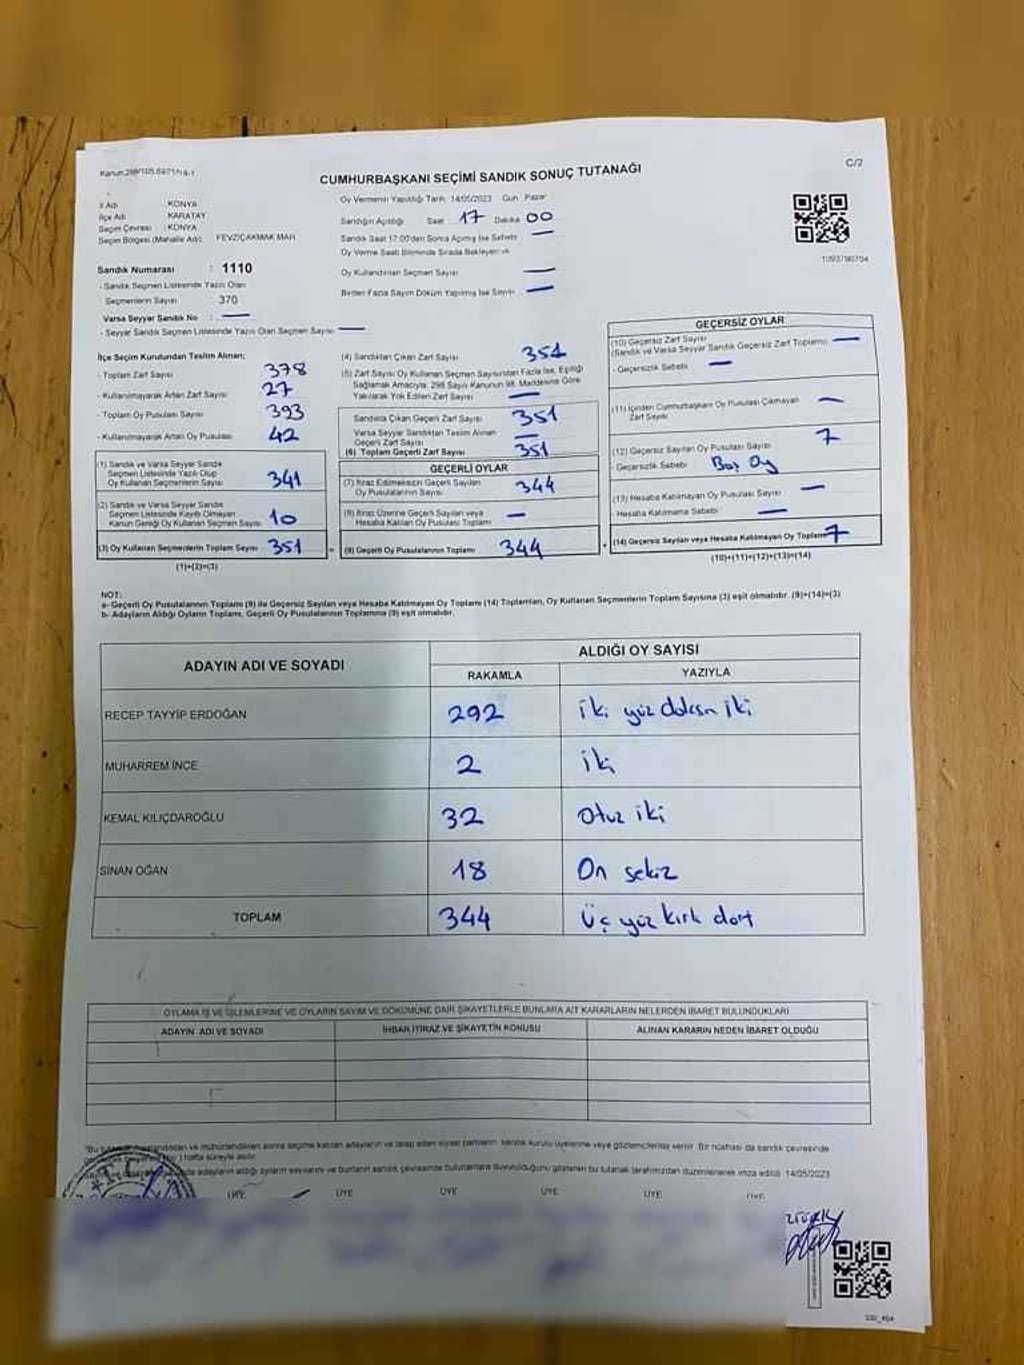 C/2
CUMHURBAŞKANI SEÇİMİ SANDIK SONUÇ TUTANAĞI
İl Adı : KONYA
İlçe Adı : KARATAY
Seçim Çevresi : KONYA
Seçim Bölgesi (Mahalle Adı) : FEVZİÇAKMAK MAH
Sandık Numarası : 1110
- Sandık Seçmen Listesinde Yazılı Olan
Seçmenlerin Sayısı : 370
Varsa Seyyar Sandık No : —
- Seyyar Sandık Seçmen Listesinde Yazılı Olan Seçmen Sayısı —
Oy Vermenin Yapıldığı Tarih 14/05/2023 Gün Pazar
Sandığın Açıldığı Saat 17 Dakika 00
Sandık Saat 17:00'den Sonra Açılmış İse Sebebi —
Oy Verme Saati Bitiminde Sırada Bekleyen ve
Oy Kullandırılan Seçmen Sayısı —
Birden Fazla Sayım Döküm Yapılmış İse Sayısı —
1093790704
İlçe Seçim Kurulundan Teslim Alınan;
- Toplam Zarf Sayısı 378
- Kullanılmayarak Artan Zarf Sayısı 27
- Toplam Oy Pusulası Sayısı 393
- Kullanılmayarak Artan Oy Pusulası 42
(1) Sandık ve Varsa Seyyar Sandık
Seçmen Listesinde Yazılı Olup
Oy Kullanan Seçmenlerin Sayısı 341
(2) Sandık ve Varsa Seyyar Sandık
Seçmen Listesinde Kayıtlı Olmayan
Kanun Gereği Oy Kullanan Seçmen Sayısı 10
(3) Oy Kullanan Seçmenlerin Toplam Sayısı 351
(1)+(2)=(3)
(4) Sandıktan Çıkan Zarf Sayısı 351
(5) Zarf Sayısı Oy Kullanan Seçmen Sayısından Fazla İse, Eşitliği
Sağlamak Amacıyla, 298 Sayılı Kanunun 98. Maddesine Göre
Yakılarak Yok Edilen Zarf Sayısı —
Sandıkta Çıkan Geçerli Zarf Sayısı 351
Varsa Seyyar Sandıktan Teslim Alınan
Geçerli Zarf Sayısı —
(6) Toplam Geçerli Zarf Sayısı 351
GEÇERLİ OYLAR
(7) İtiraz Edilmeksizin Geçerli Sayılan
Oy Pusulalarının Sayısı 344
(8) İtiraz Üzerine Geçerli Sayılan veya
Hesaba Katılan Oy Pusulası Toplamı —
(9) Geçerli Oy Pusulalarının Toplamı 344
GEÇERSİZ OYLAR
(10) Geçersiz Zarf Sayısı
(Sandık ve Varsa Seyyar Sandık Geçersiz Zarf Toplamı) —
- Geçersizlik Sebebi —
(11) İçinden Cumhurbaşkanı Oy Pusulası Çıkmayan
Zarf Sayısı —
(12) Geçersiz Sayılan Oy Pusulası Sayısı 7
- Geçersizlik Sebebi Boş Oy
(13) Hesaba Katılmayan Oy Pusulası Sayısı —
- Hesaba Katılmama Sebebi —
(14) Geçersiz Sayılan veya Hesaba Katılmayan Oy Toplamı 7
(10)+(11)+(12)+(13)=(14)
NOT:
a- Geçerli Oy Pusulalarının Toplamı (9) ile Geçersiz Sayılan veya Hesaba Katılmayan Oy Toplamı (14) Toplamları, Oy Kullanan Seçmenlerin Toplam Sayısına (3) eşit olmalıdır. (9)+(14)=(3)
b- Adayların Aldığı Oyların Toplamı, Geçerli Oy Pusulalarının Toplamına (9) eşit olmalıdır.
ADAYIN ADI VE SOYADI ALDIĞI OY SAYISI
RAKAMLA YAZIYLA
RECEP TAYYİP ERDOĞAN 292 iki yüz doksan iki
MUHARREM İNCE 2 iki
KEMAL KILIÇDAROĞLU 32 Otuz iki
SİNAN OĞAN 18 On sekiz
TOPLAM 344 Üç yüz kırk dört
OYLAMA İŞ VE İŞLEMLERİNE VE OYLARIN SAYIM VE DÖKÜMÜNE DAİR ŞİKAYETLERLE BUNLARA AİT KARARLARIN NELERDEN İBARET BULUNDUKLARI
ADAYIN ADI VE SOYADI İHBAR İTİRAZ VE ŞİKAYETİN KONUSU ALINAN KARARIN NEDEN İBARET OLDUĞU
sandık kurulu üyelerine veya gözlemcilerine verilir. Bir nüshası da sandık çevresinde
) hafta süreyle asılır.
adayların aldığı oyların sayılarını ve bunların sandık çevresinde bulunanlara duyurulduğunu gösteren bu tutanak tarafımızdan düzenlenerek imza edildi. 14/05/2023
T.C.
ÜYE ÜYE ÜYE ÜYE ÜYE ÜYE